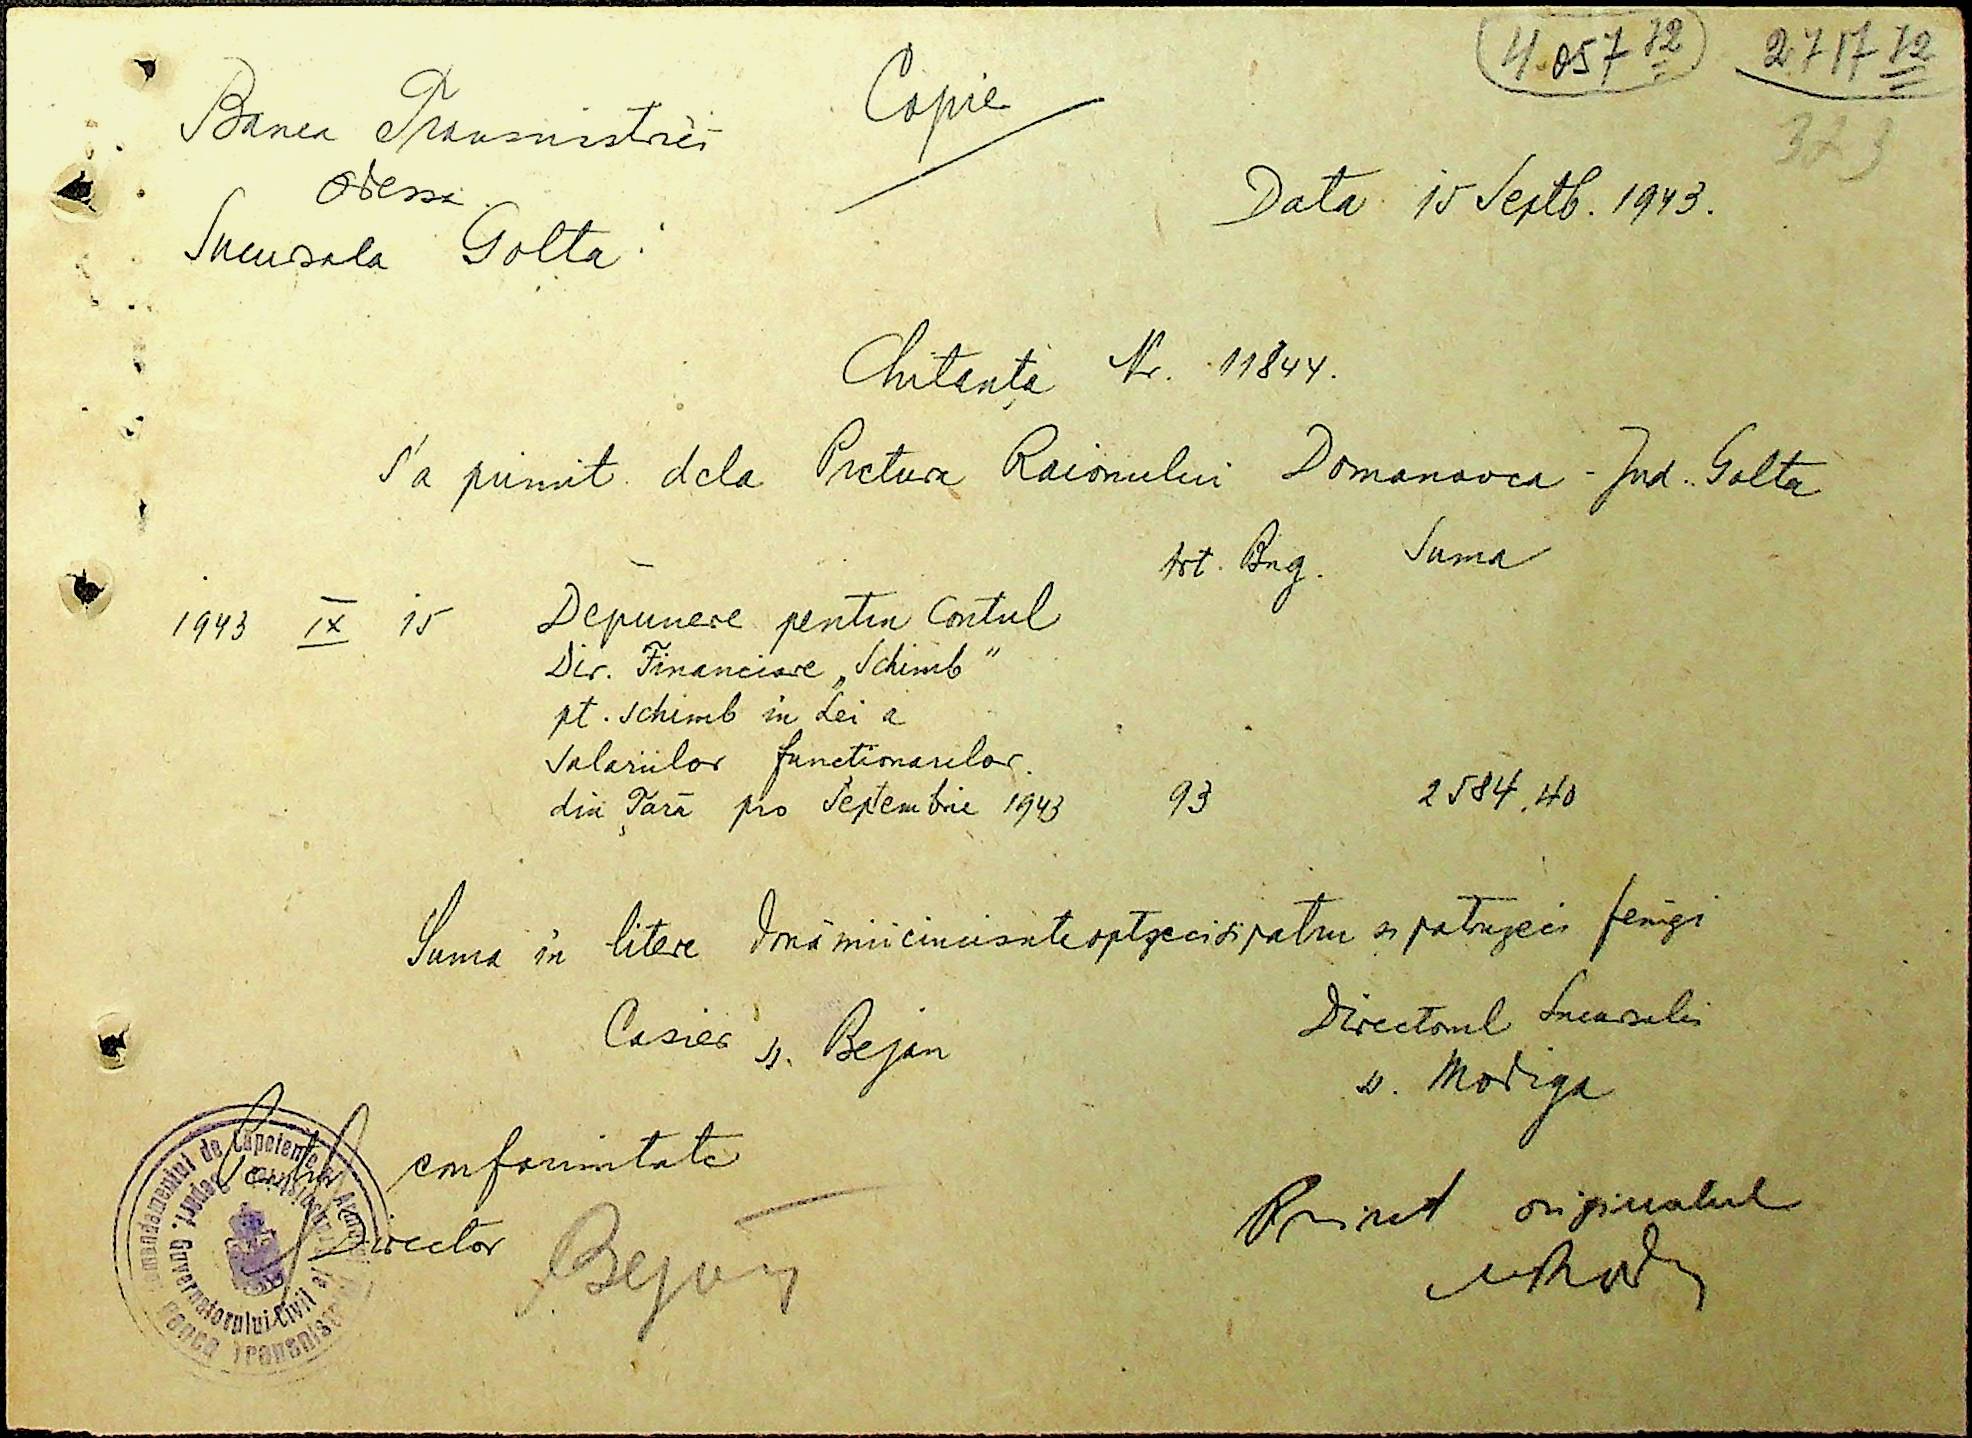 Copie
4.057 72
2717 72
373
Banca Transnistriei
Odessa
Sucursala Golta
Data 15 Septb. 1943.
Chitanța Nr. 11844.
S'a primit dela Pretura Raionului Domanovca - Jud. Golta
Art. Bug. Suma
1943 IX 15 Depunere pentru Contul
Dir. Financiare „Schimb"
pt. schimb in Lei a
salariilor functionarilor
din Țară pro Septembrie 1943 93 2584,40
Suma in litere Douămiicincisuteoptzecisipatru si patruzeci fenigi
Casier ss. Bejan
Directorul Sucursalei
ss. Modiga
Pentru conformitate
Director
Bejan
Primit originalul
Comandamentul de Căpetenie al Armatei
Depart. Guvernatorului Civil al Transnistriei
Banca Transnistriei